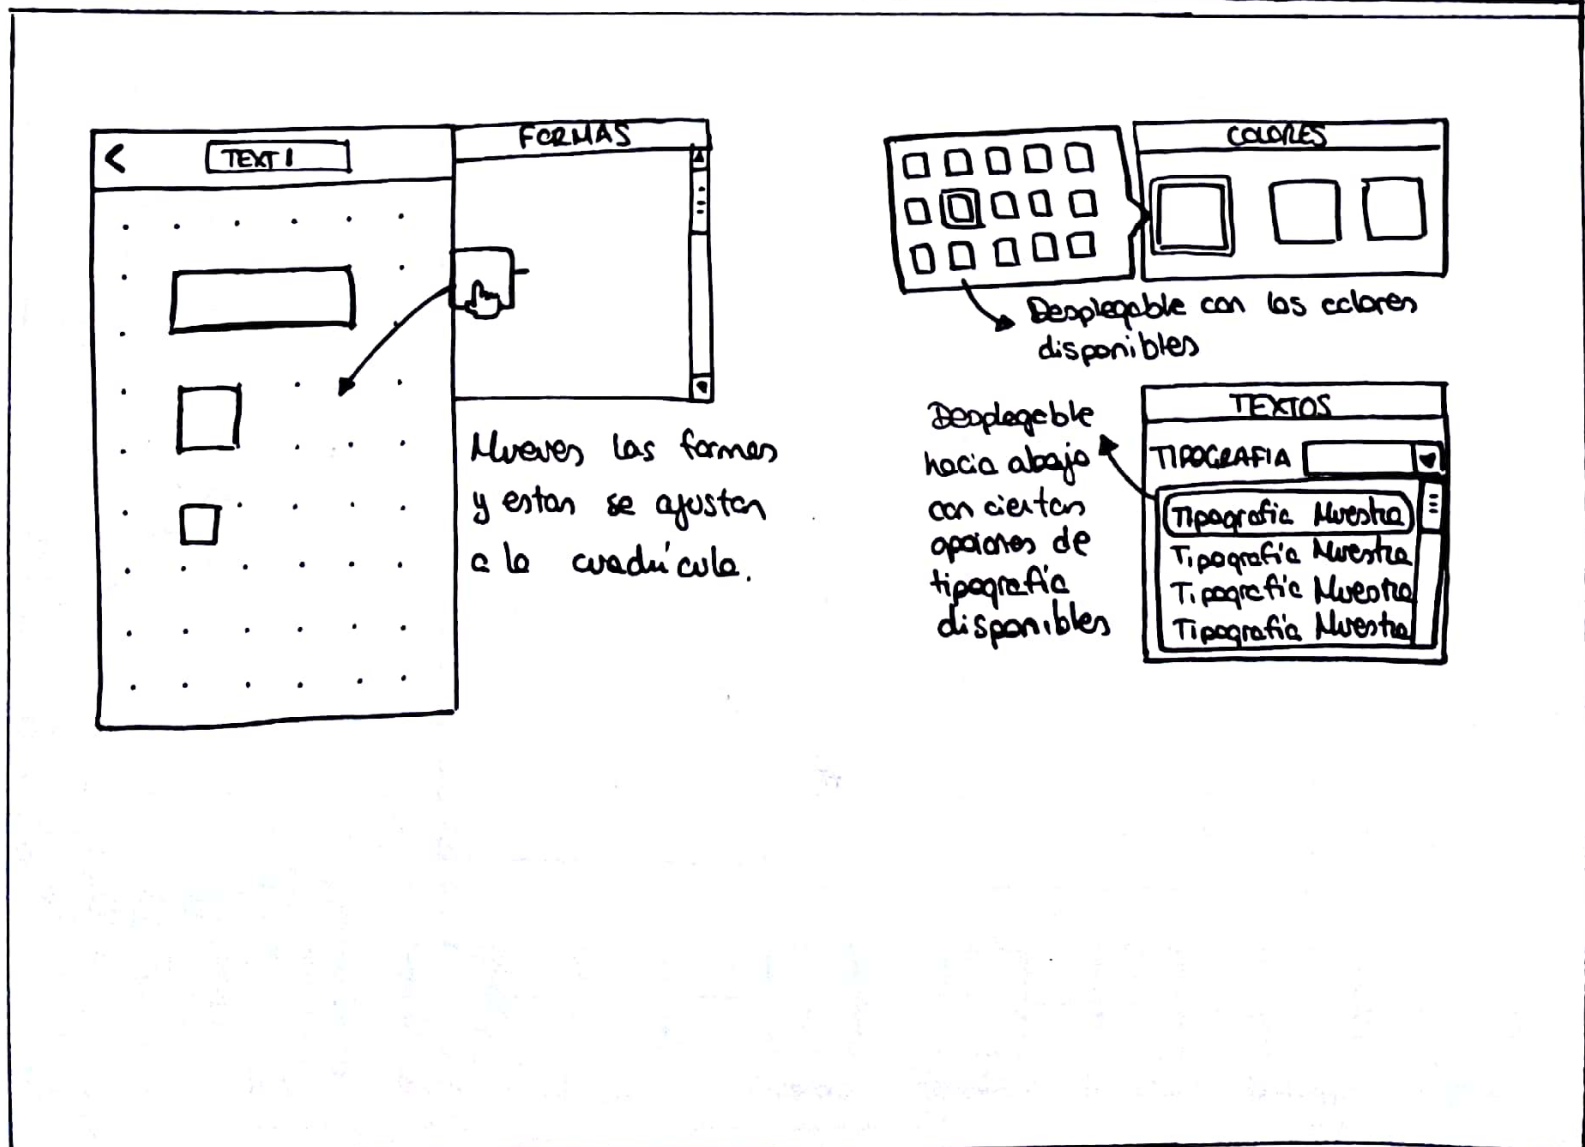 <
TEXT 1
FORMAS
Mueves las formas
y estas se ajustan
a la cuadrícula.
COLORES
Desplegable con los colores
disponibles
Desplegable
hacia abajo
con ciertas
opciones de
tipografía
disponibles
TEXTOS
TIPOGRAFIA
Tipografía Muestra
Tipografía Muestra
Tipografía Muestra
Tipografía Muestra